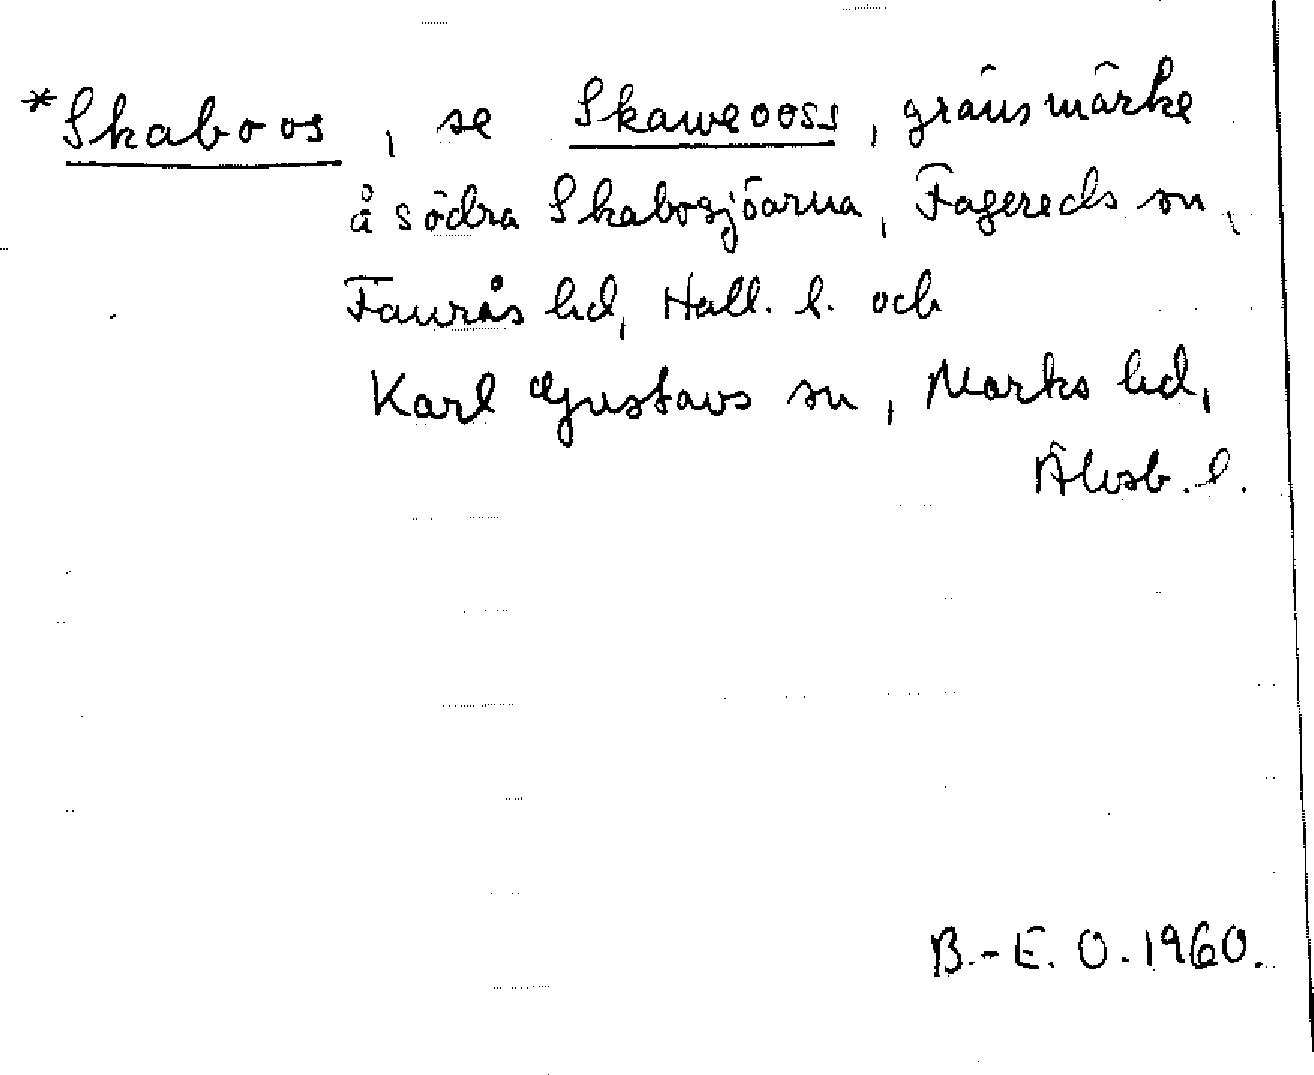 *Skaboos, se Skaweooss, gränsmärke
å södra Skabosjöarna, Fagereds sn,
Faurås hd, Hall. l. och
Karl Gustavs sn, Marks hd,
Älvsb. l.
B.-E. O. 1960.